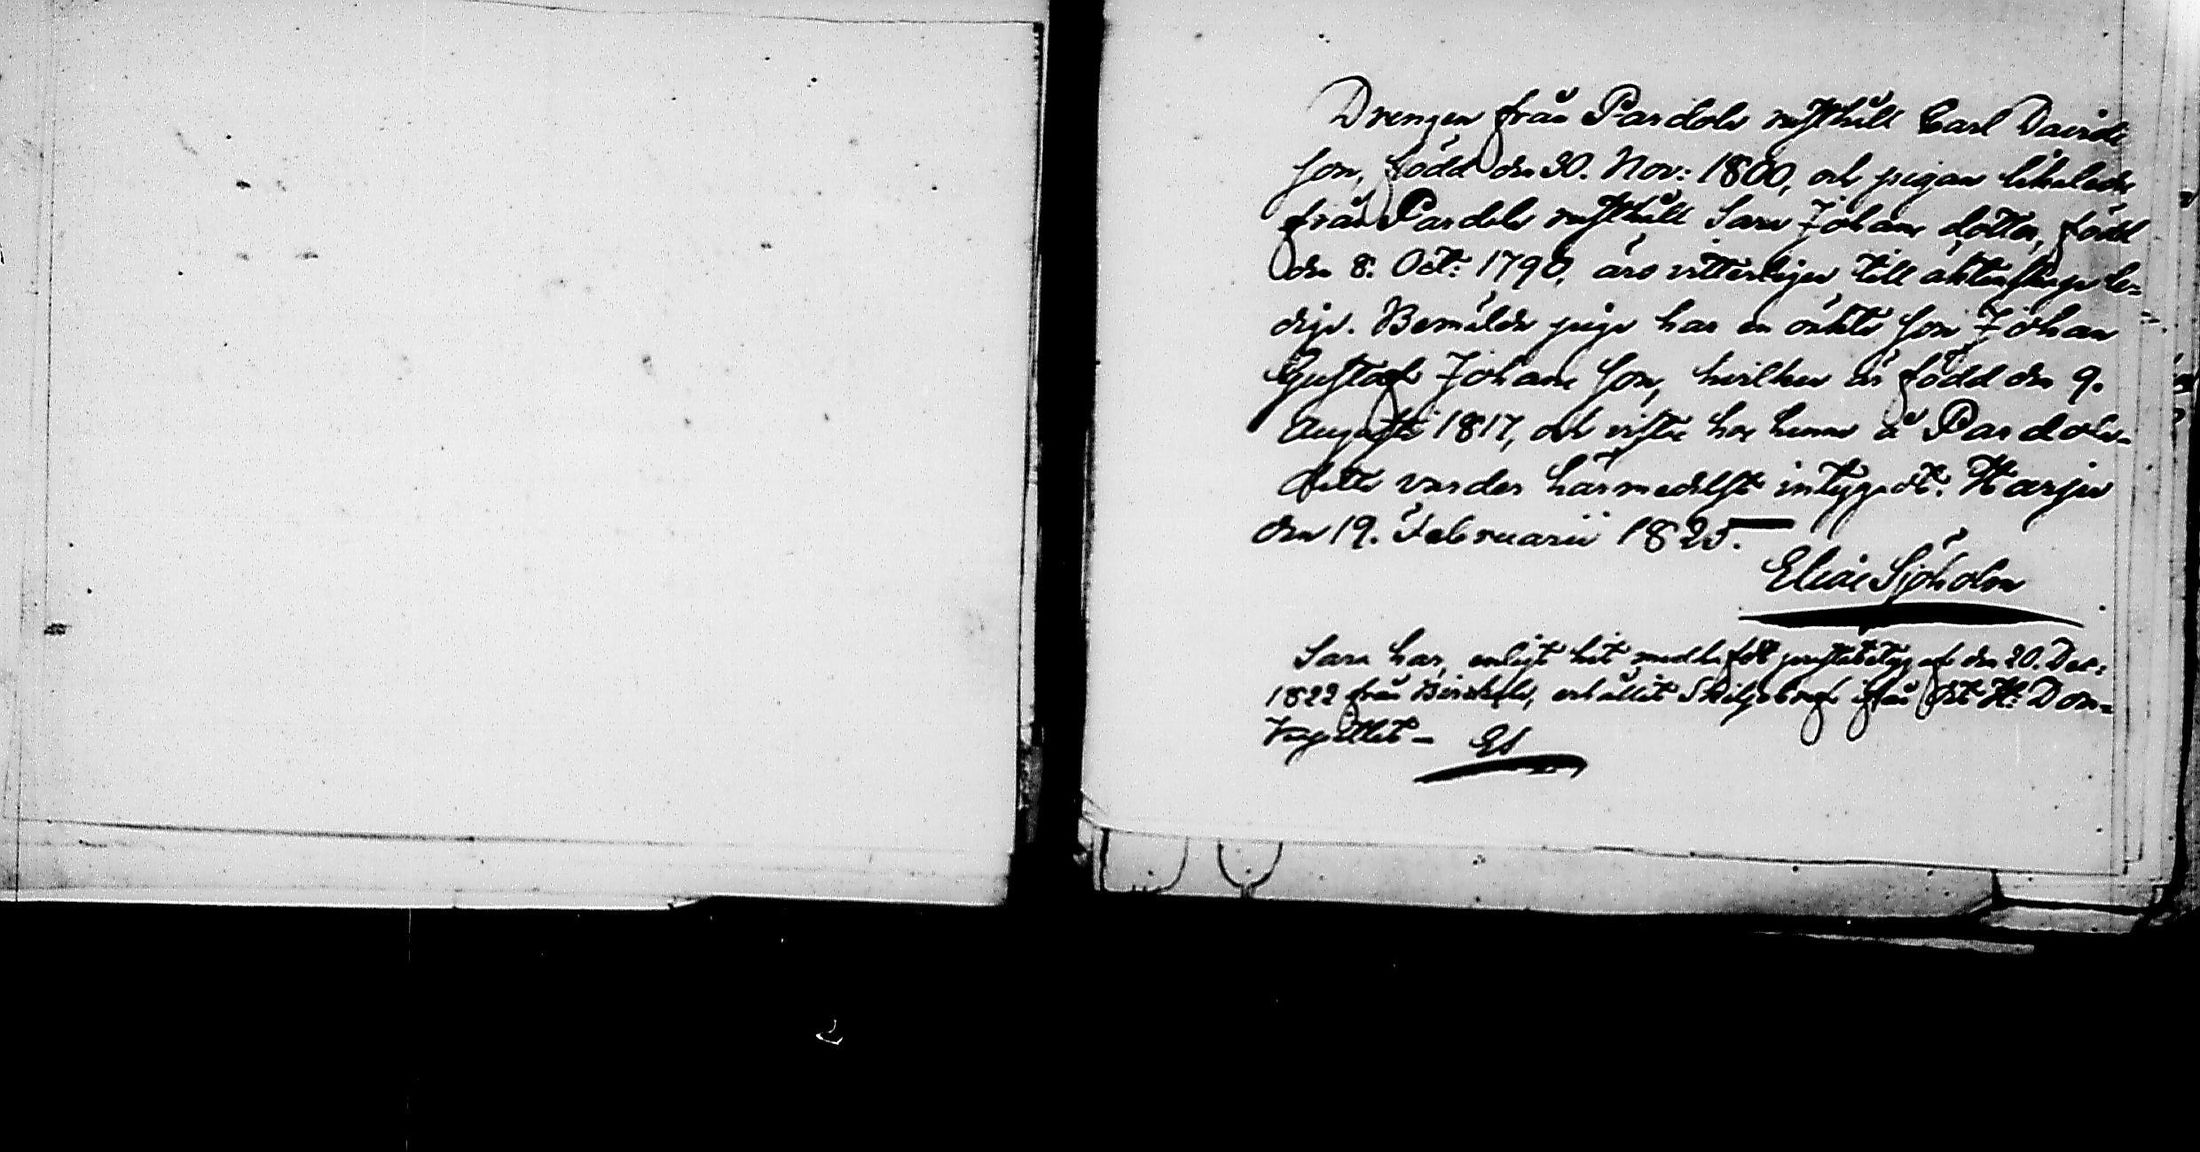 Drengen från Pardola rusthåll Carl Davids
son, född den 30. Nov: 1800, och pigan likaledes
från Pardola rusthåll Sara Johans dotter, född
den 8. Oct: 1790, äro vitterligen till äktenskap le-
diga. Bemälde piga har en oäkta son Johan
Gustaf Johans son, hvilken är född den 9.
Augusti 1817, och vistas hos henne å Pardola.
Detta varder härmedelst intygadt. Harju
den 19. Februarii 1825.
Elias Sjöholm
Sara har, enligt hit medhafdt prestbetyg af den 20. Dec:
1822 från Birkala, erhållit Skiljobref ifrån H: Dom-
Kapitlet - ES